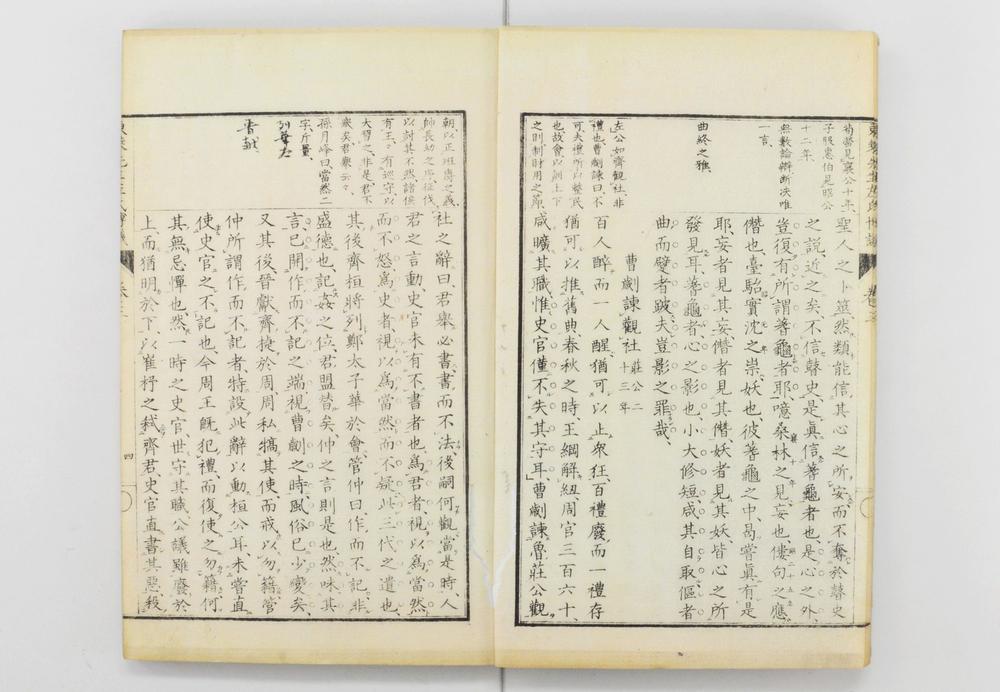 聖人之卜筮然類能信其心之所安而不奪於瞽史
之説近之矣不信瞽史是眞信蓍龜者也是心之外
豈復有所謂蓍龜者耶噫桑林之見妄也僂句之應
僭也臺駘實沈之祟妖也彼蓍龜之中曷嘗眞有是
耶妄者見其妄僭者見其僭妖者見其妖皆心之所
發見耳蓍龜者心之影也小大修短咸其自取傴者
曲而躄者跛夫豈影之罪哉
曹劌諫觀社 莊公二十三年
百人醉而一人醒猶可以止衆狂百禮廢而一禮存
猶可以推舊典春秋之時王綱解紐周官三百六十
咸曠其職惟史官僅不失其守耳曹劌諫魯莊公觀
曲終之雅
左公如齊觀社非
禮也曹劌諫曰不
可夫禮所以整民
也故會以訓上下
之則制財用之節
社之辭曰君舉必書書而不法後嗣何觀當是時人
君之言動史官未有不書者也爲君者視以爲當然
而不怒爲史者視以爲當然而不疑此三代之遺也
其後齊桓將列鄭太子華於會管仲曰作而不記非
盛德也記姦之位君盟替矣仲之言則是也然味其
言已開作而不記之端視曹劌之時風俗已少變矣
又其後晉獻齊捷於周周私犒其使而戒以勿籍管
仲所謂作而不記者特設此辭以動桓公耳未嘗直
使史官之不記也今周王旣犯禮而復使之勿籍何
其無忌憚也然一時之史官世守其職公議雖廢於
上而猶明於下以崔杼之弑齊君史官直書其惡殺
朝以正班爵之義
師長幼之序征伐
以討其不然諸侯
有王王有巡守以
大習之非是君不
舉矣君舉云云
孫月峰曰當然二
字斤量
四